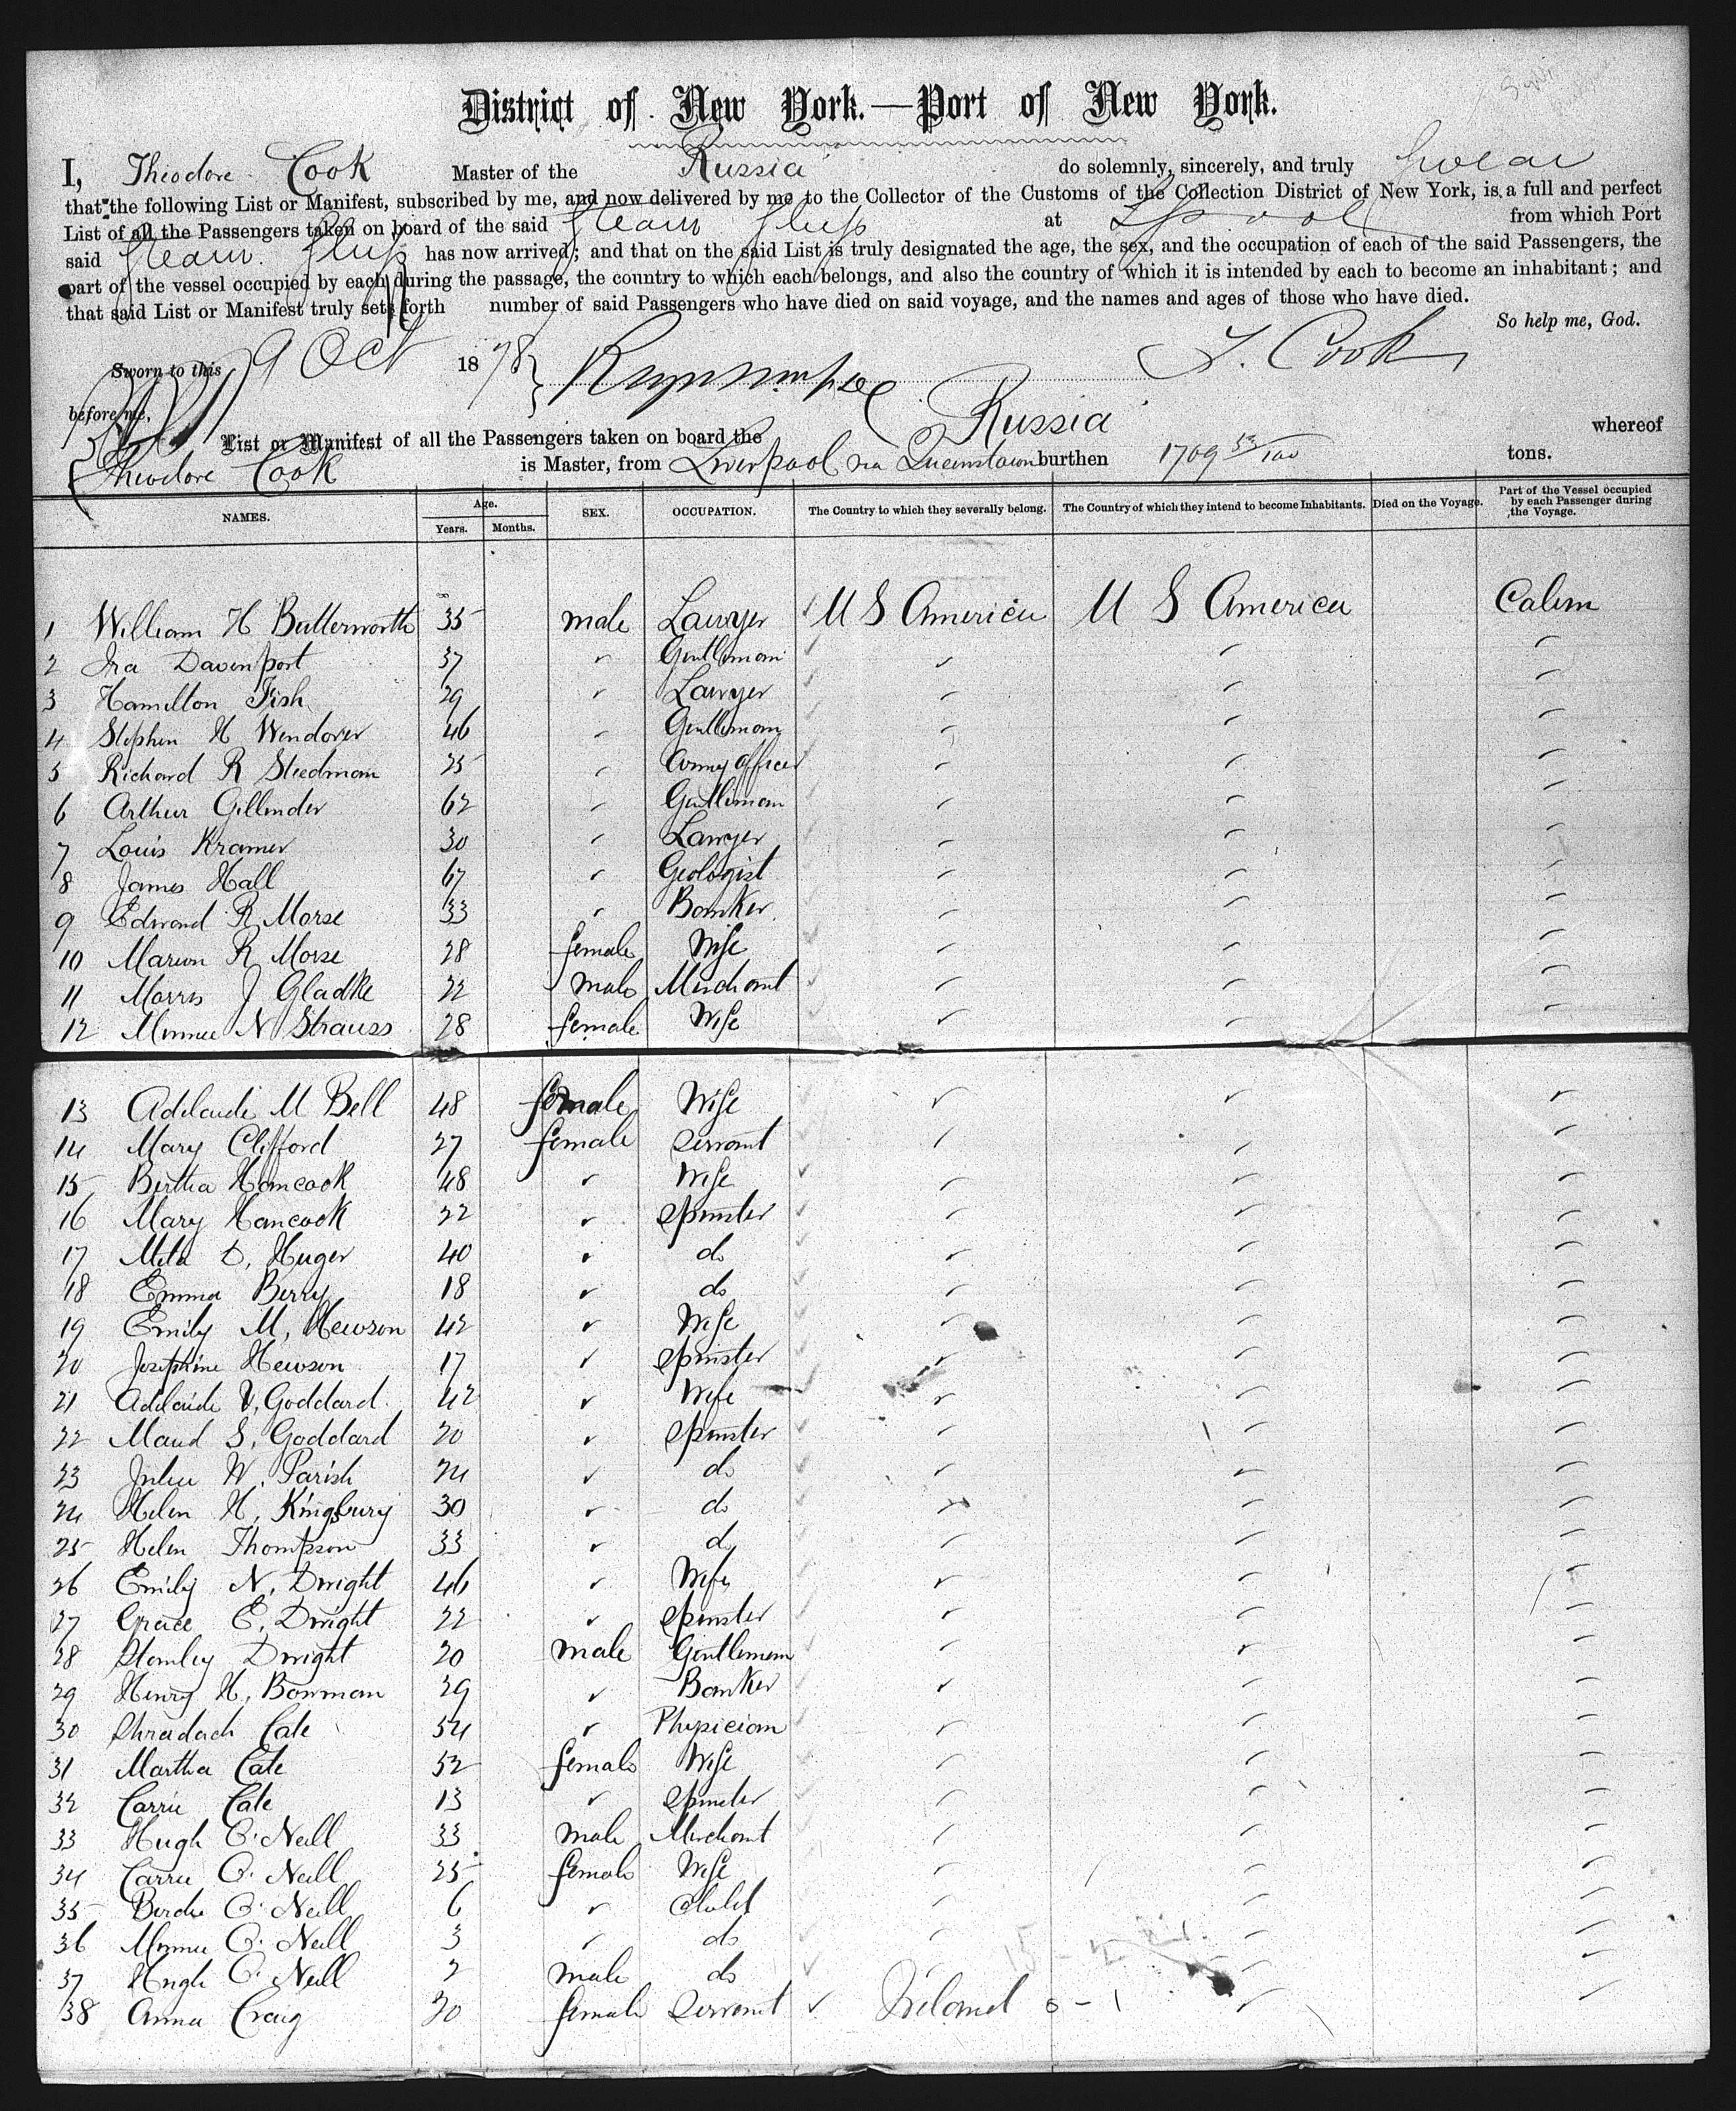 District of New York.—Port of New York.
I, Theodore Cook Master of the Russia do solemnly, sincerely, and truly swear
that the following List or Manifest, subscribed by me, and now delivered by me to the Collector of the Customs of the Collection District of New York, is a full and perfect
List of all the Passengers taken on board of the said Steam Ship at Lpool from which Port
said Steam Ship has now arrived; and that on the said List is truly designated the age, the sex, and the occupation of each of the said Passengers, the
part of the vessel occupied by each during the passage, the country to which each belongs, and also the country of which it is intended by each to become an inhabitant; and
that said List or Manifest truly sets forth number of said Passengers who have died on said voyage, and the names and ages of those who have died.
So help me, God.
Sworn to this 9 Oct 1878 } T. Cook
before me,
List or Manifest of all the Passengers taken on board the Russia whereof
Theodore Cook is Master, from Liverpool via Queenstown burthen 1709 53/100 tons.
NAMES. Age. Years. Months. SEX. OCCUPATION. The Country to which they severally belong. The Country of which they intend to become Inhabitants. Died on the Voyage. Part of the Vessel occupied by each Passenger during the Voyage.
1 William H Butterworth 35 male Lawyer ✓ U S America U S America Cabin
2 Ira Davenport 37 ✓ Gentleman ✓ ✓ ✓ ✓
3 Hamilton Fish 29 ✓ Lawyer ✓ ✓ ✓ ✓
4 Stephen H Wendover 46 ✓ Gentleman ✓ ✓ ✓
5 Richard R Steedman 25 ✓ Army Officer ✓ ✓ ✓
6 Arthur Gillender 62 ✓ Gentleman ✓ ✓ ✓ ✓
7 Louis Kramer 30 ✓ Lawyer ✓ ✓ ✓ ✓
8 James Hall 67 ✓ Geologist ✓ ✓ ✓ ✓
9 Edward R Morse 33 ✓ Banker ✓ ✓ ✓ ✓
10 Marion R Morse 28 female Wife ✓ ✓ ✓ ✓
11 Morris J Gladke 22 male Merchant ✓ ✓ ✓ ✓
12 Minnie N Strauss 28 female Wife ✓ ✓ ✓ ✓
13 Adelaide M Bell 48 female Wife ✓ ✓ ✓
14 Mary Clifford 27 female Servant ✓ ✓ ✓
15 Bertha Hancock 48 ✓ Wife ✓ ✓ ✓ ✓
16 Mary Hancock 22 ✓ Spinster ✓ ✓ ✓ ✓
17 Meta D. Huger 40 ✓ do ✓ ✓ ✓ ✓
18 Emma Berry 18 ✓ do ✓ ✓ ✓ ✓
19 Emily M. Hewson 42 ✓ Wife ✓ ✓ ✓ ✓
20 Josephine Hewson 17 ✓ Spinster ✓ ✓ ✓ ✓
21 Adelaide V. Goddard 42 ✓ Wife ✓ ✓ ✓ ✓
22 Maud S. Goddard 20 ✓ Spinster ✓ ✓ ✓ ✓
23 Julia W. Parish 24 ✓ do ✓ ✓ ✓ ✓
24 Helen H. Kingsbury 30 ✓ do ✓ ✓ ✓ ✓
25 Helen Thompson 33 ✓ do ✓ ✓ ✓ ✓
26 Emily N. Dwight 46 ✓ Wife ✓ ✓ ✓ ✓
27 Grace E. Dwight 22 ✓ Spinster ✓ ✓ ✓ ✓
28 Stanley Dwight 20 male Gentleman ✓ ✓ ✓ ✓
29 Henry H. Bowman 29 ✓ Banker ✓ ✓ ✓ ✓
30 Shradach Cate 54 ✓ Physician ✓ ✓ ✓ ✓
31 Martha Cate 52 female Wife ✓ ✓ ✓ ✓
32 Carrie Cate 13 ✓ Spinster ✓ ✓ ✓ ✓
33 Hugh O'Neill 33 male Merchant ✓ ✓ ✓ ✓
34 Carrie O'Neill 25 female Wife ✓ ✓ ✓ ✓
35 Birdie O'Neill 6 ✓ Child ✓ ✓ ✓ ✓
36 Minnie O'Neill 3 ✓ do ✓ ✓ ✓ ✓
37 Hugh O'Neill 2 male do ✓ ✓ ✓
38 Anna Craig 20 female Servant ✓ Ireland 0 – 1 ✓ ✓